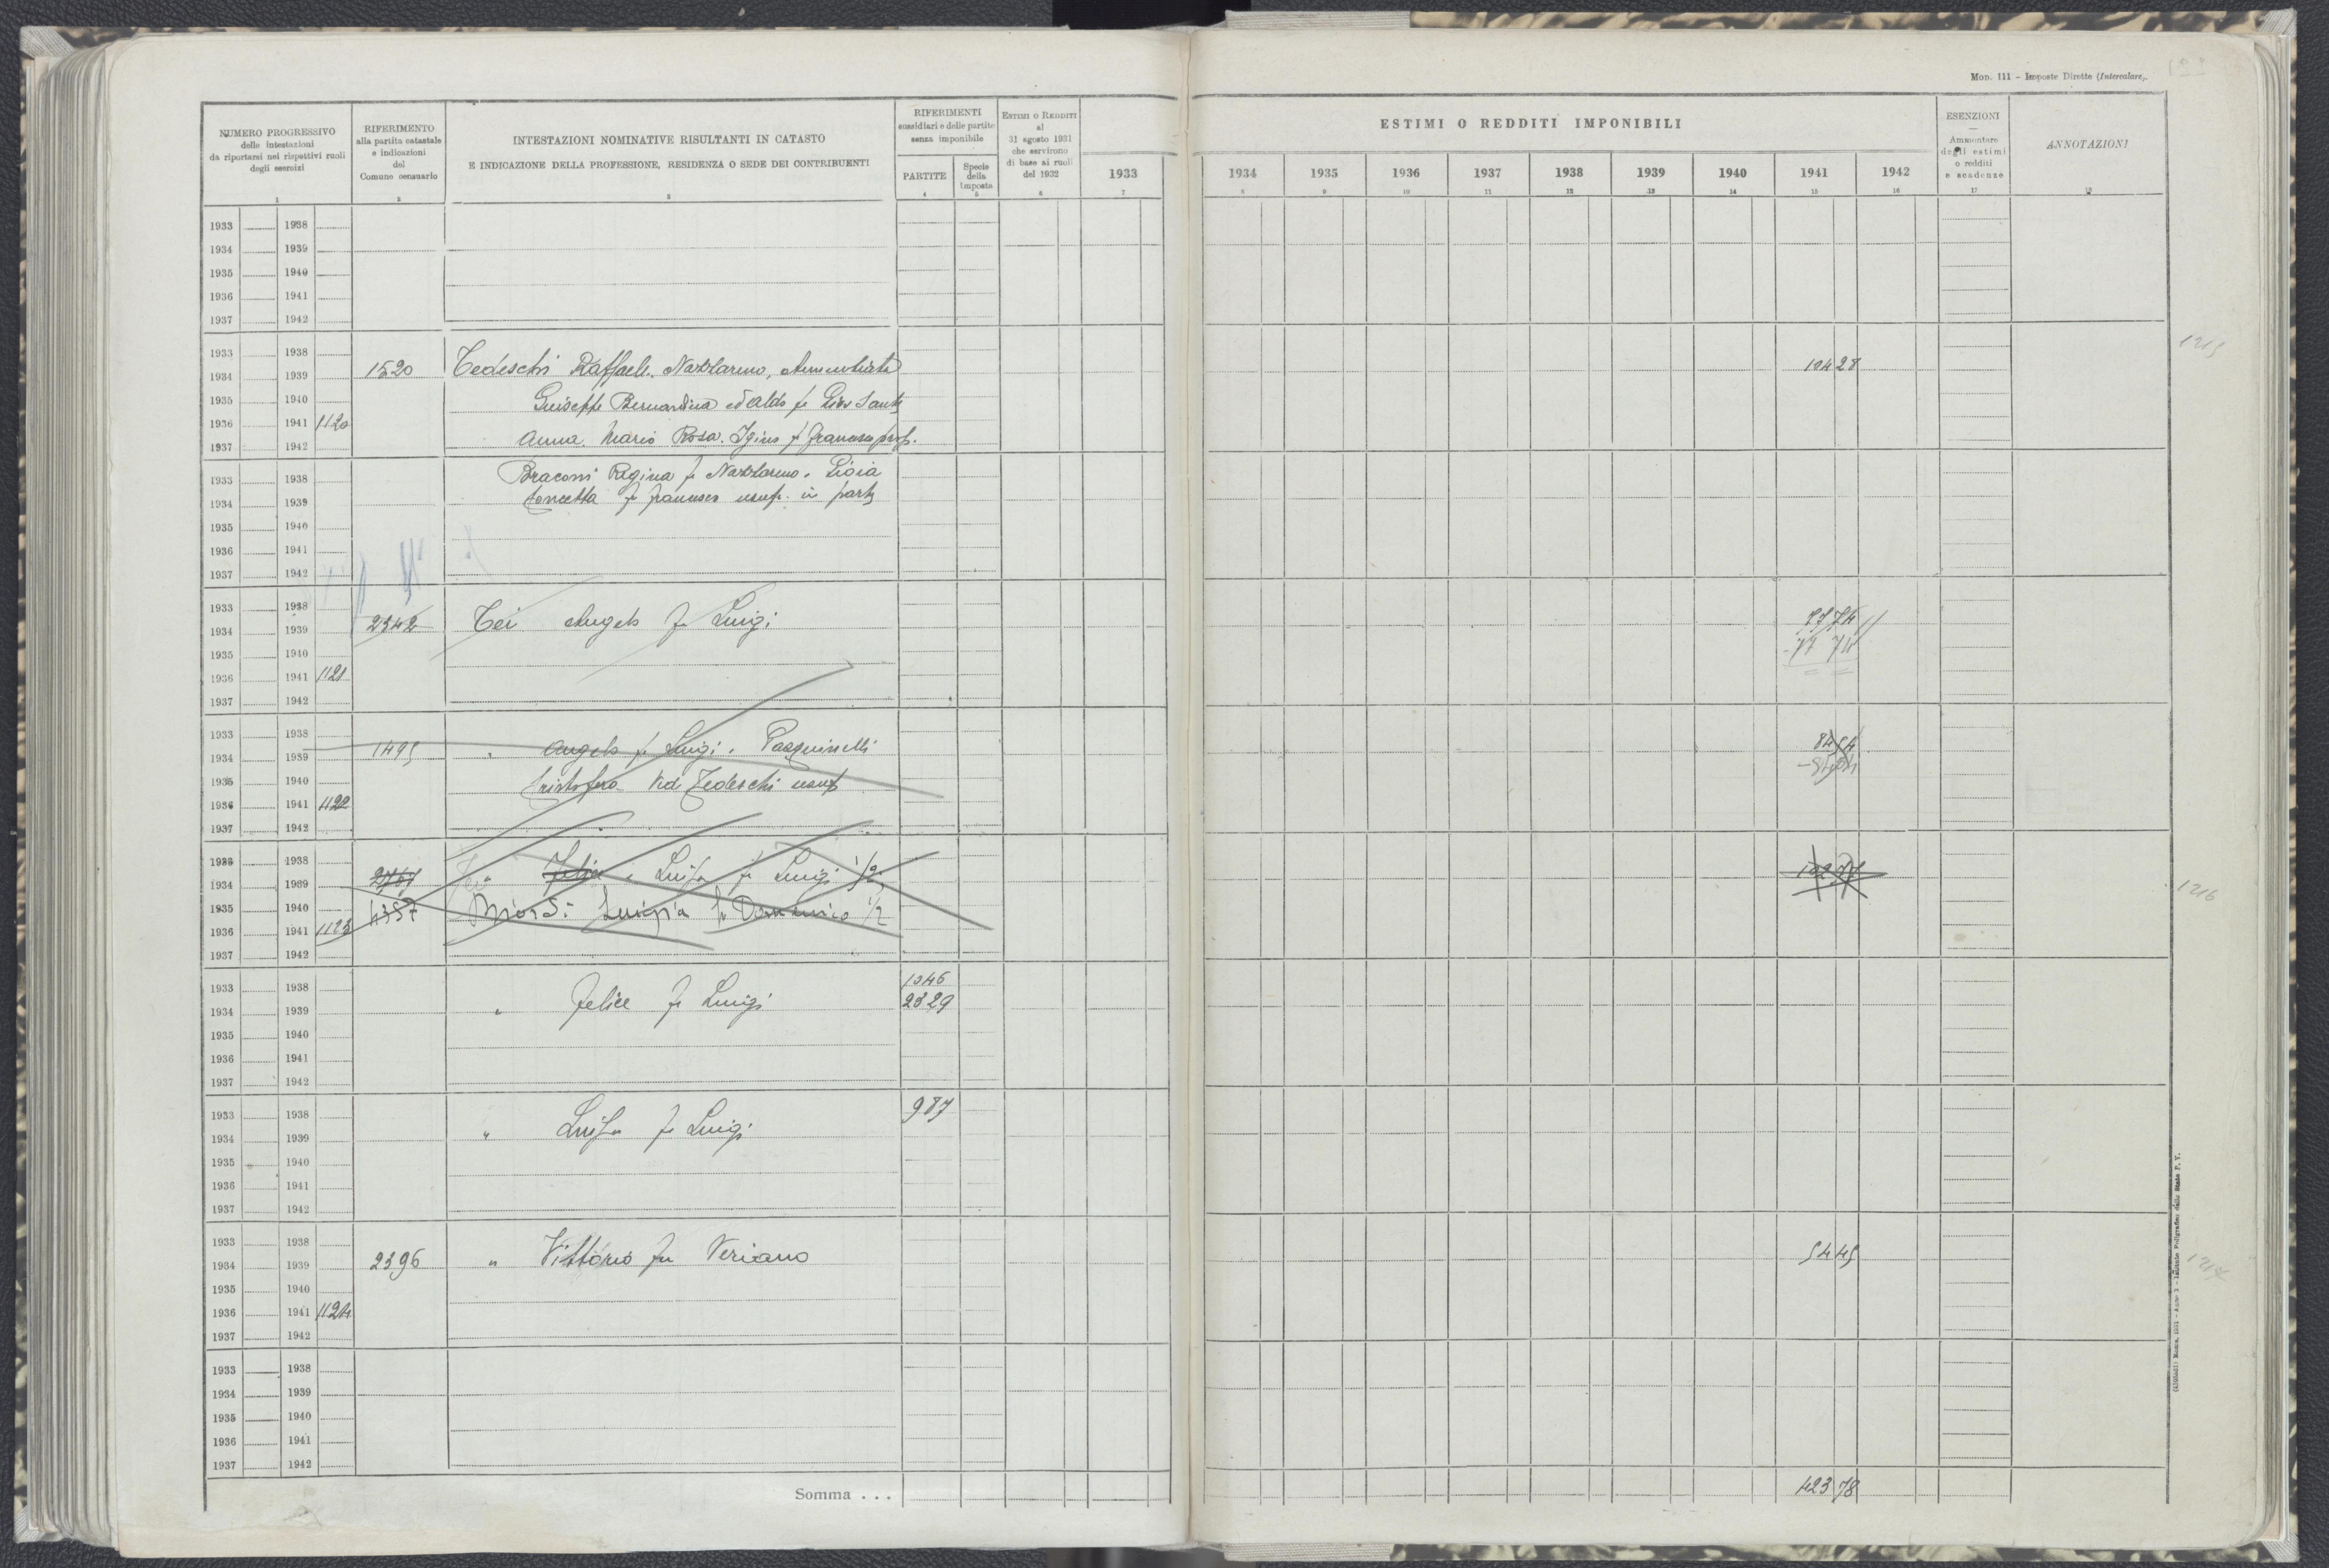 Mon. 111 - Imposte Dirette (Intercalare).
NUMERO PROGRESSIVO
delle intestazioni
da riportarsi nei rispettivi ruoli
degli esercizi
1
RIFERIMENTO
alla partita catastale
e indicazioni
del
Comune censuario
2
INTESTAZIONI NOMINATIVE RISULTANTI IN CATASTO
E INDICAZIONE DELLA PROFESSIONE, RESIDENZA O SEDE DEI CONTRIBUENTI
3
RIFERIMENTI
sussidiari e delle partite
senza imponibile
PARTITE
4
Specie
della
imposta
5
ESTIMI O REDDITI
al
31 agosto 1931
che servirono
di base ai ruoli
del 1932
6
ESTIMI O REDDITI IMPONIBILI
1933 1934 1935 1936 1937 1938 1939 1940 1941 1942
7 8 9 10 11 12 13 14 15 16
ESENZIONI
Ammontare
degli estimi
o redditi
e scadenze
17
ANNOTAZIONI
18
1933 1938
1934 1939
1935 1940
1936 1941
1937 1942
1933 1938
1934 1939 1520 Tedeschi Raffaele, Nazzareno, Annunziata 104 28
1215
1935 1940 Giuseppe Bernardina ed Aldo fu
1936 1941 1120
1937 1942 Anna, Mario Rosa. Igino fu Francesco prop.
1933 1938 Braconi Regina fu Nazzareno.
1934 1939 Concetta fu Francesco usuf. in parte
1935 1940
1936 1941
1937 1942
1933 1938
1934 1939 2342 Tei Angelo fu Luigi 77 74
1935 1940 - 77 74
1936 1941 1121
1937 1942
1933 1938
1934 1939 1495 " Angelo fu Luigi. Pasquinelli 84 54
1935 1940 Cristofora Ved Tedeschi usuf
1936 1941 1122
1937 1942
1933 1938
1934 1939 " Felice e Luisa fu Luigi 1/2 102 77
1216
1935 1940 4357 Luigia fu Domenico 1/2
1936 1941 1123
1937 1942
1933 1938 1346
1934 1939 " Felice fu Luigi 2329
1935 1940
1936 1941
1937 1942
1933 1938 987
1934 1939 " Luisa fu Luigi
1935 1940
1936 1941
1937 1942
1933 1938
1934 1939 2396 " Vittorio fu Veriano 54 45
1217
1935 1940
1936 1941 1124
1937 1942
1933 1938
1934 1939
1935 1940
1936 1941
1937 1942
Somma . . . 423 78